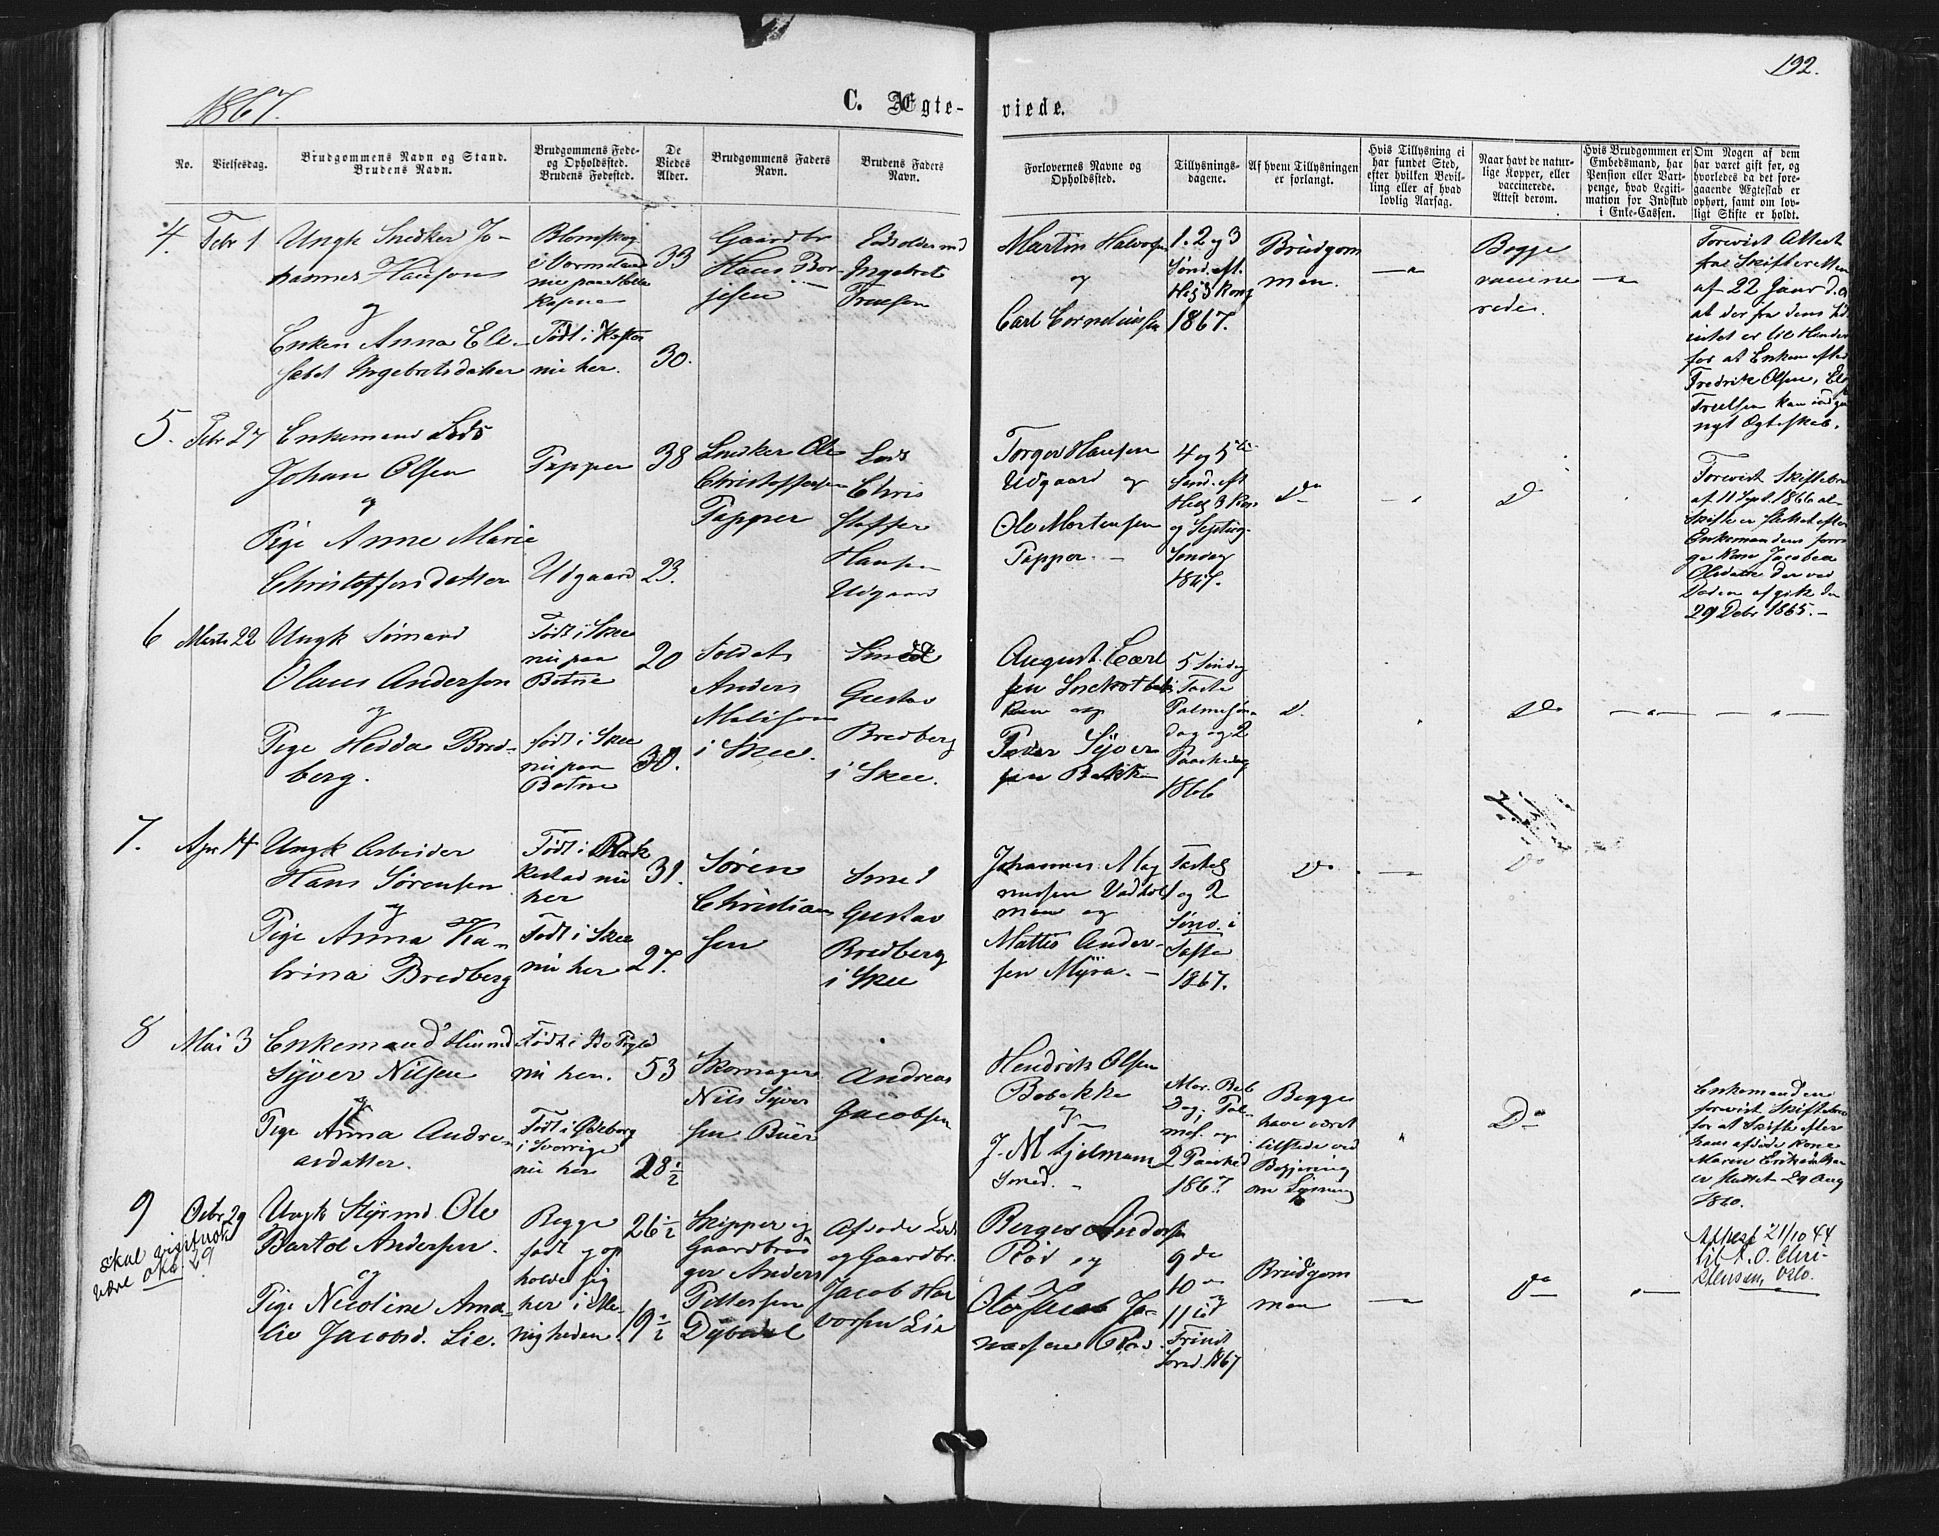 192.
1867.
C. Ægte-
viede.
No.
Vielsesdag.
Brudgommens Navn og Stand.
Brudens Navn.
Brudgommens Føde-
og Opholdssted.
Brudens Fødested.
De
Viedes
Alder.
Brudgommens Faders
Navn.
Brudens Faders
Navn.
Forlovernes Navne og
Opholdssted.
Tillysnings-
dagene.
Af hvem Tillysningen
er forlangt.
Hvis Tillysning ei
har fundet Sted,
efter hvilken Bevil-
ling eller af hvad
lovlig Aarsag.
Naar havt de natur-
lige Kopper, eller
vaccinerede.
Attest derom.
Hvis Brudgommen er
Embedsmand, har
Pension eller Vart-
penge, hvad Legiti-
mation for Indskud
i Enke-Cassen.
Om Nogen af dem
har været gift før, og
hvorledes da det fore-
gaaende Ægteskab er
ophørt, samt om lov-
ligt Skifte er holdt.
4.
Febr 1
Ungk Snedker Jo-
hannes Hansen
og
Enken Anna Eli-
sabet Ingebretsdatter
Blomskog
i Vermeland
Født i
nu her.
33
30.
Gaardbr
Hans Bør-
jesen
Ingebret
Truelsen
Martin Halvorsen
og
Carl Corneliussen
1. 2 og 3
Sønd. eft.
Hel. 3 Kong
1867.
Brudgom
men.
Begge
vaccine
rede.
Forevist Attest
fra Skifteretten
af 22 Januar d. A.
at der fra dens Side
intet er til Hinder
for at Enken efter
Fredrik Olsen,
Truelsen kan indgaa
nyt Ægteskab.
5.
Febr 27
Enkemand Lods
Johan Olsen
og
Pige Anne Marie
Christoffersdatter
Papper
Udgaard
38
23.
Snedker Ole
Christoffersen
Papper
Lods
Chris
stoffer
Hansen
Udgaard
Torger Hansen
Udgaard og
Ole Mortensen
Papper. -
4 og 5te
Sønd. eft
Hel 3 Kon
og Septuag.
Søndag
1867.
Do
D
Forevist Skiftebrev
af 11 Sept. 1866 at
Skifte er sluttet efter
Enkemandens forri
ge Kone Jacobea
Olsdatter der ved
Døden afgik den
29 Debr 1865. -
6
Marts 22
Ungk Sømand
Olaus Andersen
og
Pige Hedda Bred-
berg.
Født i Skee
nu paa
Botne
født i Skee
nu paa
Botne
20
30.
Soldat
Anders
i Skee.
Smed
Gustav
Bredberg
i Skee.
August Carl
sen
og
Peder Syver
sen Bakke
5 Søndag
i Faste
Palmesøn-
dag og 2
Paaskedag
1866
D.
Do
7.
Apr 14
Ungk Arbeider
Hans Sørensen
og
Pige Anna Ka-
trina Bredberg
Født i Rak
kestad nu
her
Født i Skee
nu her
31.
27.
Søren
Christian
sen
Smed
Gustav
Bredberg
i Skee
Johannes Mag
nussen
og
Mattis Ander-
sen Myra. -
Fastel
og 2
Sønd. i
Faste
1867.
Do
Do
8
Mai 3
Enkemand Huusmd
Syver Nilsen
og
Pige Anna Andre-
asdatter.
Født i
nu her.
Født i Ødeborg
i Sverrige
nu her
53
28 1/2
Skomager
Nils Syver
sen Buer
Andreas
Jacobsen
Hendrik Olsen
Bobakke
og
J. M. Hjelmann
Smed. -
Mar. Beb
Dag, Pal-
mes. og
2 Paasked
1867.
Begge
have været
tilstede ved
Begjering
om Lysning
Do
Enkemanden
forevist Skiftebrev
for at Skifte efter
hans afdøde Kone
Maren Eriksdatter
er sluttet 29 Aug
1860.
9
Octbr 29
skal visstnok
være okt. 29
Ungk Styrmd. Ole
Bartol Andersen.
og
Pige Nicoline Ama-
lie Jacobsd. Lie.
Begge
født og op
holde sig
her i Me-
nigheden.
26 1/2
19 1/2
Skipper og
Gaardbru
ger Anders
Pettersen
Dybedal
Afdøde Lods
og Gaardbr.
Jacob Hal
vorsen Lie
Berger Andersen
Rød og
Ole Jacob Jo-
nassen Rød.
9de
10 og
11te
Trinit
Sønd. 1867
Brudgom
men
Do
Attest 21/10 44
til A. O. Chri-
stensen, Oslo.